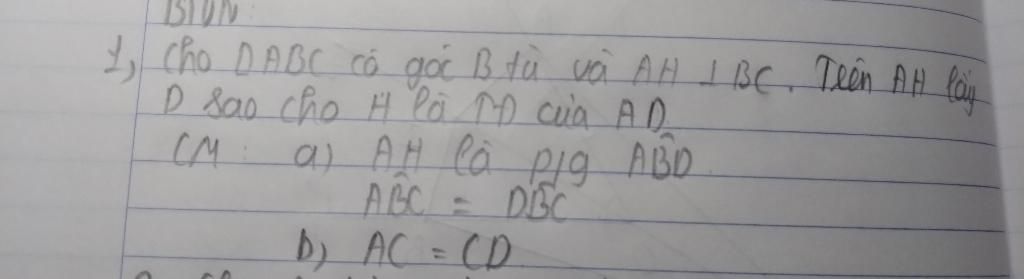 BTVN:
1, Cho ΔABC có góc B tù và AH ⊥ BC. Trên AH lấy
D sao cho H là TĐ của AD.
CM: a) AH là p/g AB̂D
AB̂C = DB̂C
b) AC = CD